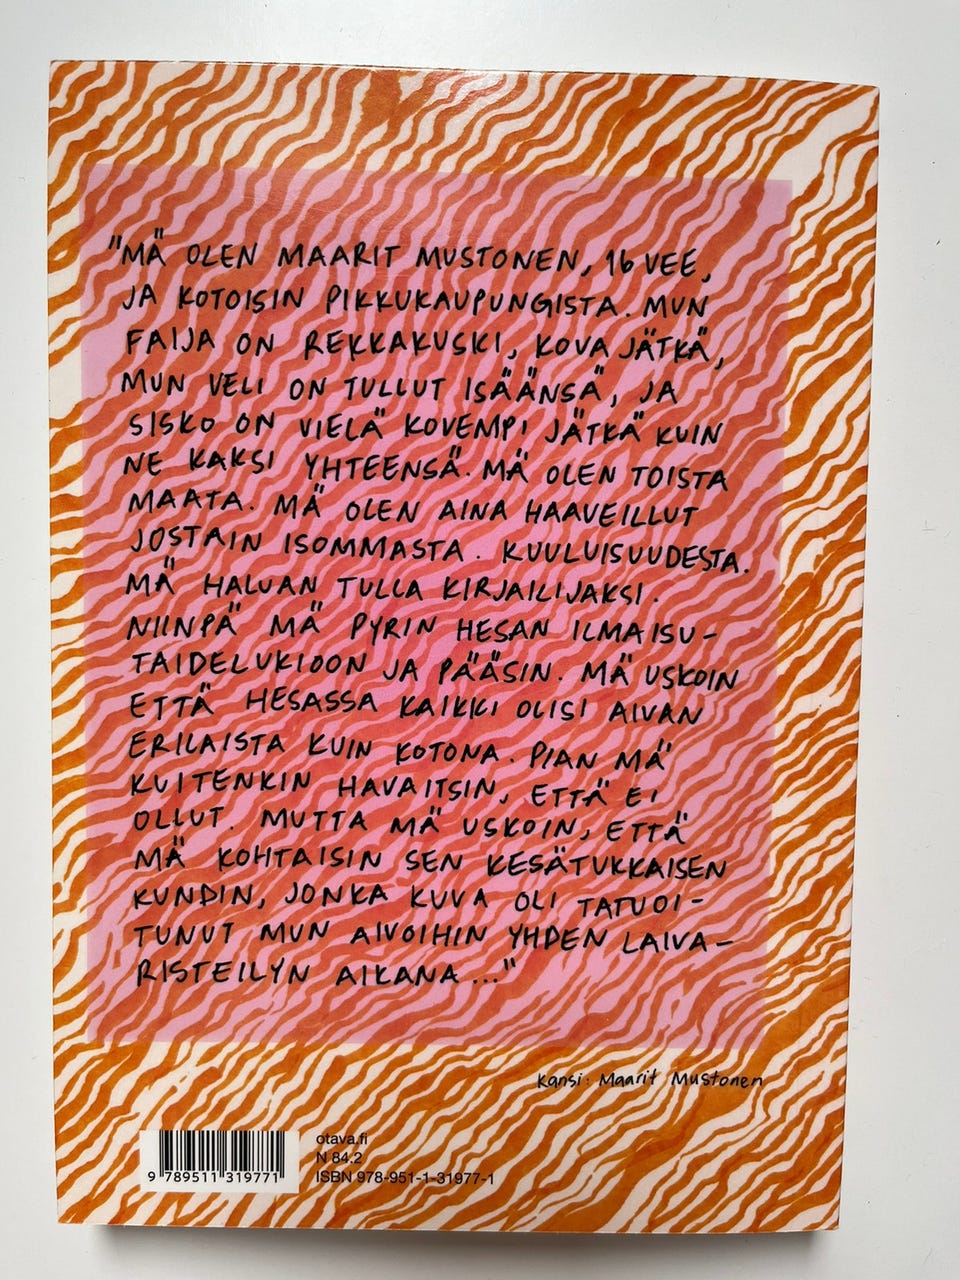 "MÄ OLEN MAARIT MUSTONEN, 16 VEE,
JA KOTOISIN PIKKUKAUPUNGISTA. MUN
FAIJA ON REKKAKUSKI, KOVA JÄTKÄ,
MUN VELI ON TULLUT ISÄÄNSÄ, JA
SISKO ON VIELÄ KOVEMPI JÄTKÄ KUIN
NE KAKSI YHTEENSÄ. MÄ OLEN TOISTA
MAATA. MÄ OLEN AINA HAAVEILLUT
JOSTAIN ISOMMASTA. KUULUISUUDESTA.
MÄ HALUAN TULLA KIRJAILIJAKSI.
NIINPÄ MÄ PYRIN HESAN ILMAISU-
TAIDELUKIOON JA PÄÄSIN. MÄ USKOIN
ETTÄ HESASSA KAIKKI OLISI AIVAN
ERILAISTA KUIN KOTONA. PIAN MÄ
KUITENKIN HAVAITSIN, ETTÄ EI
OLLUT. MUTTA MÄ USKOIN, ETTÄ
MÄ KOHTAISIN SEN KESÄTUKKAISEN
KUNDIN, JONKA KUVA OLI TATUOI-
TUNUT MUN AIVOIHIN YHDEN LAIVA-
RISTEILYN AIKANA..."
Kansi: Maarit Mustonen
otava.fi
N 84.2
ISBN 978-951-1-31977-1
9 789511 319771